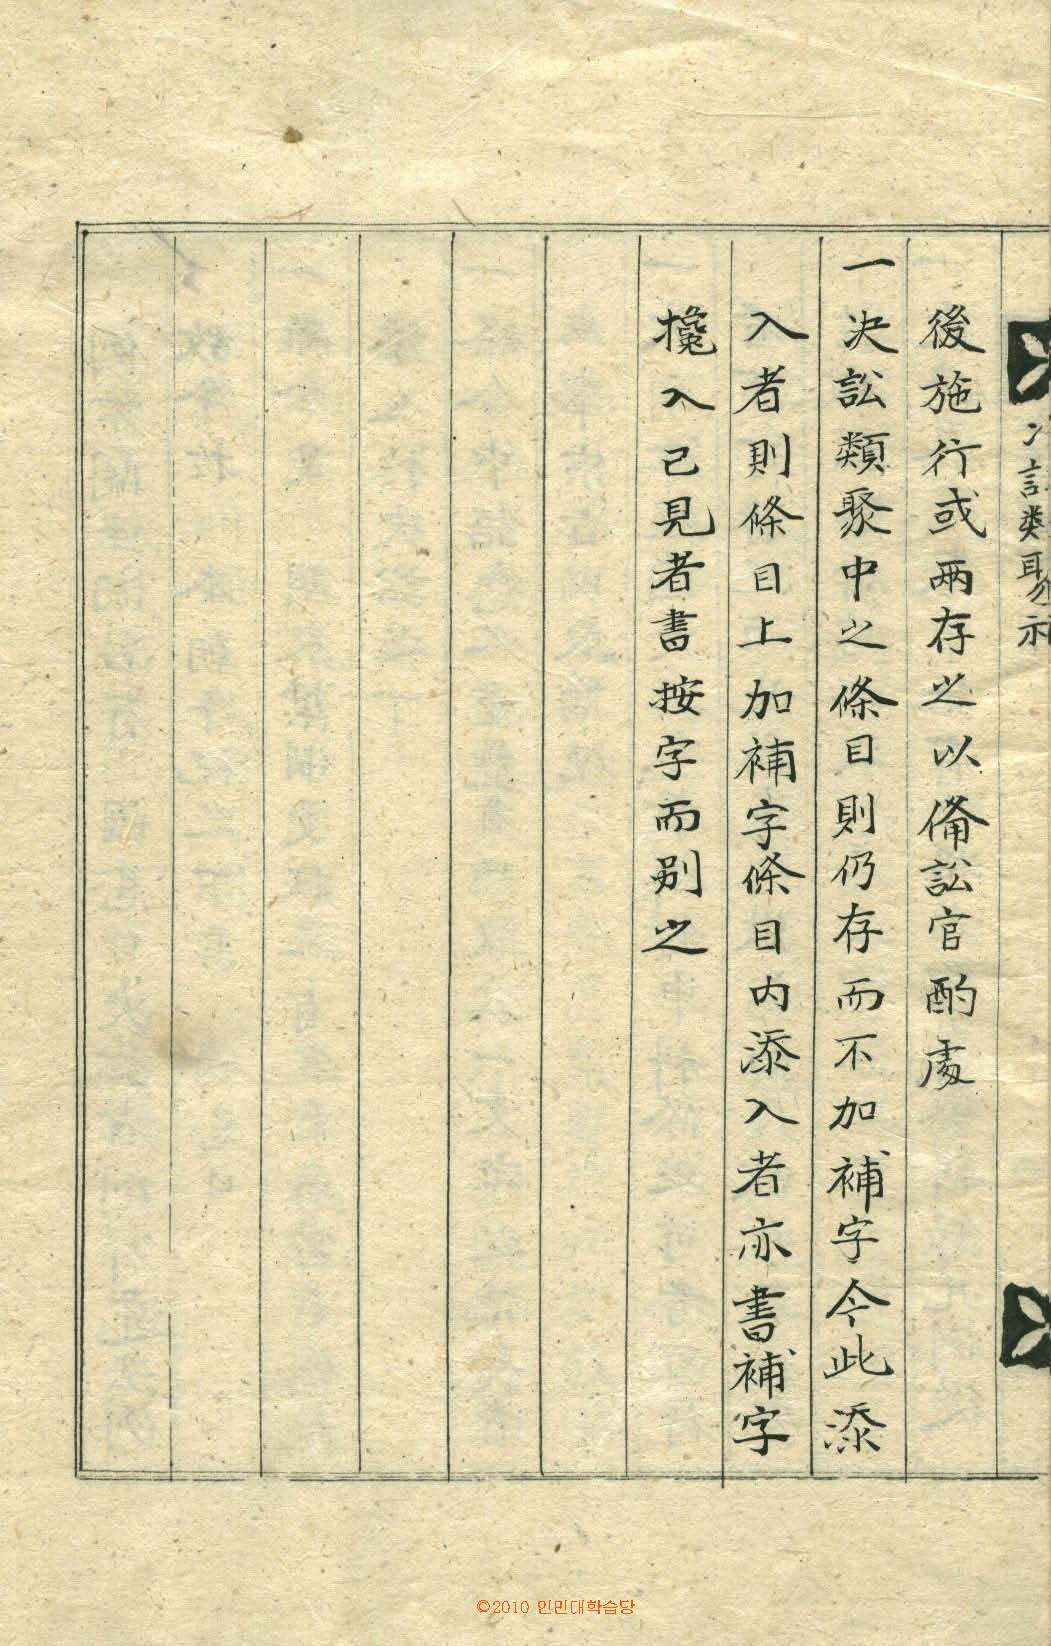 後施行或兩存之以備訟官酌處
一決訟類聚中之條目則仍存而不加補字今此添
入者則條目上加補字條目內添入者亦書補字
攙入己見者書按字而别之
訟类聚补
©2010 인민대학습당